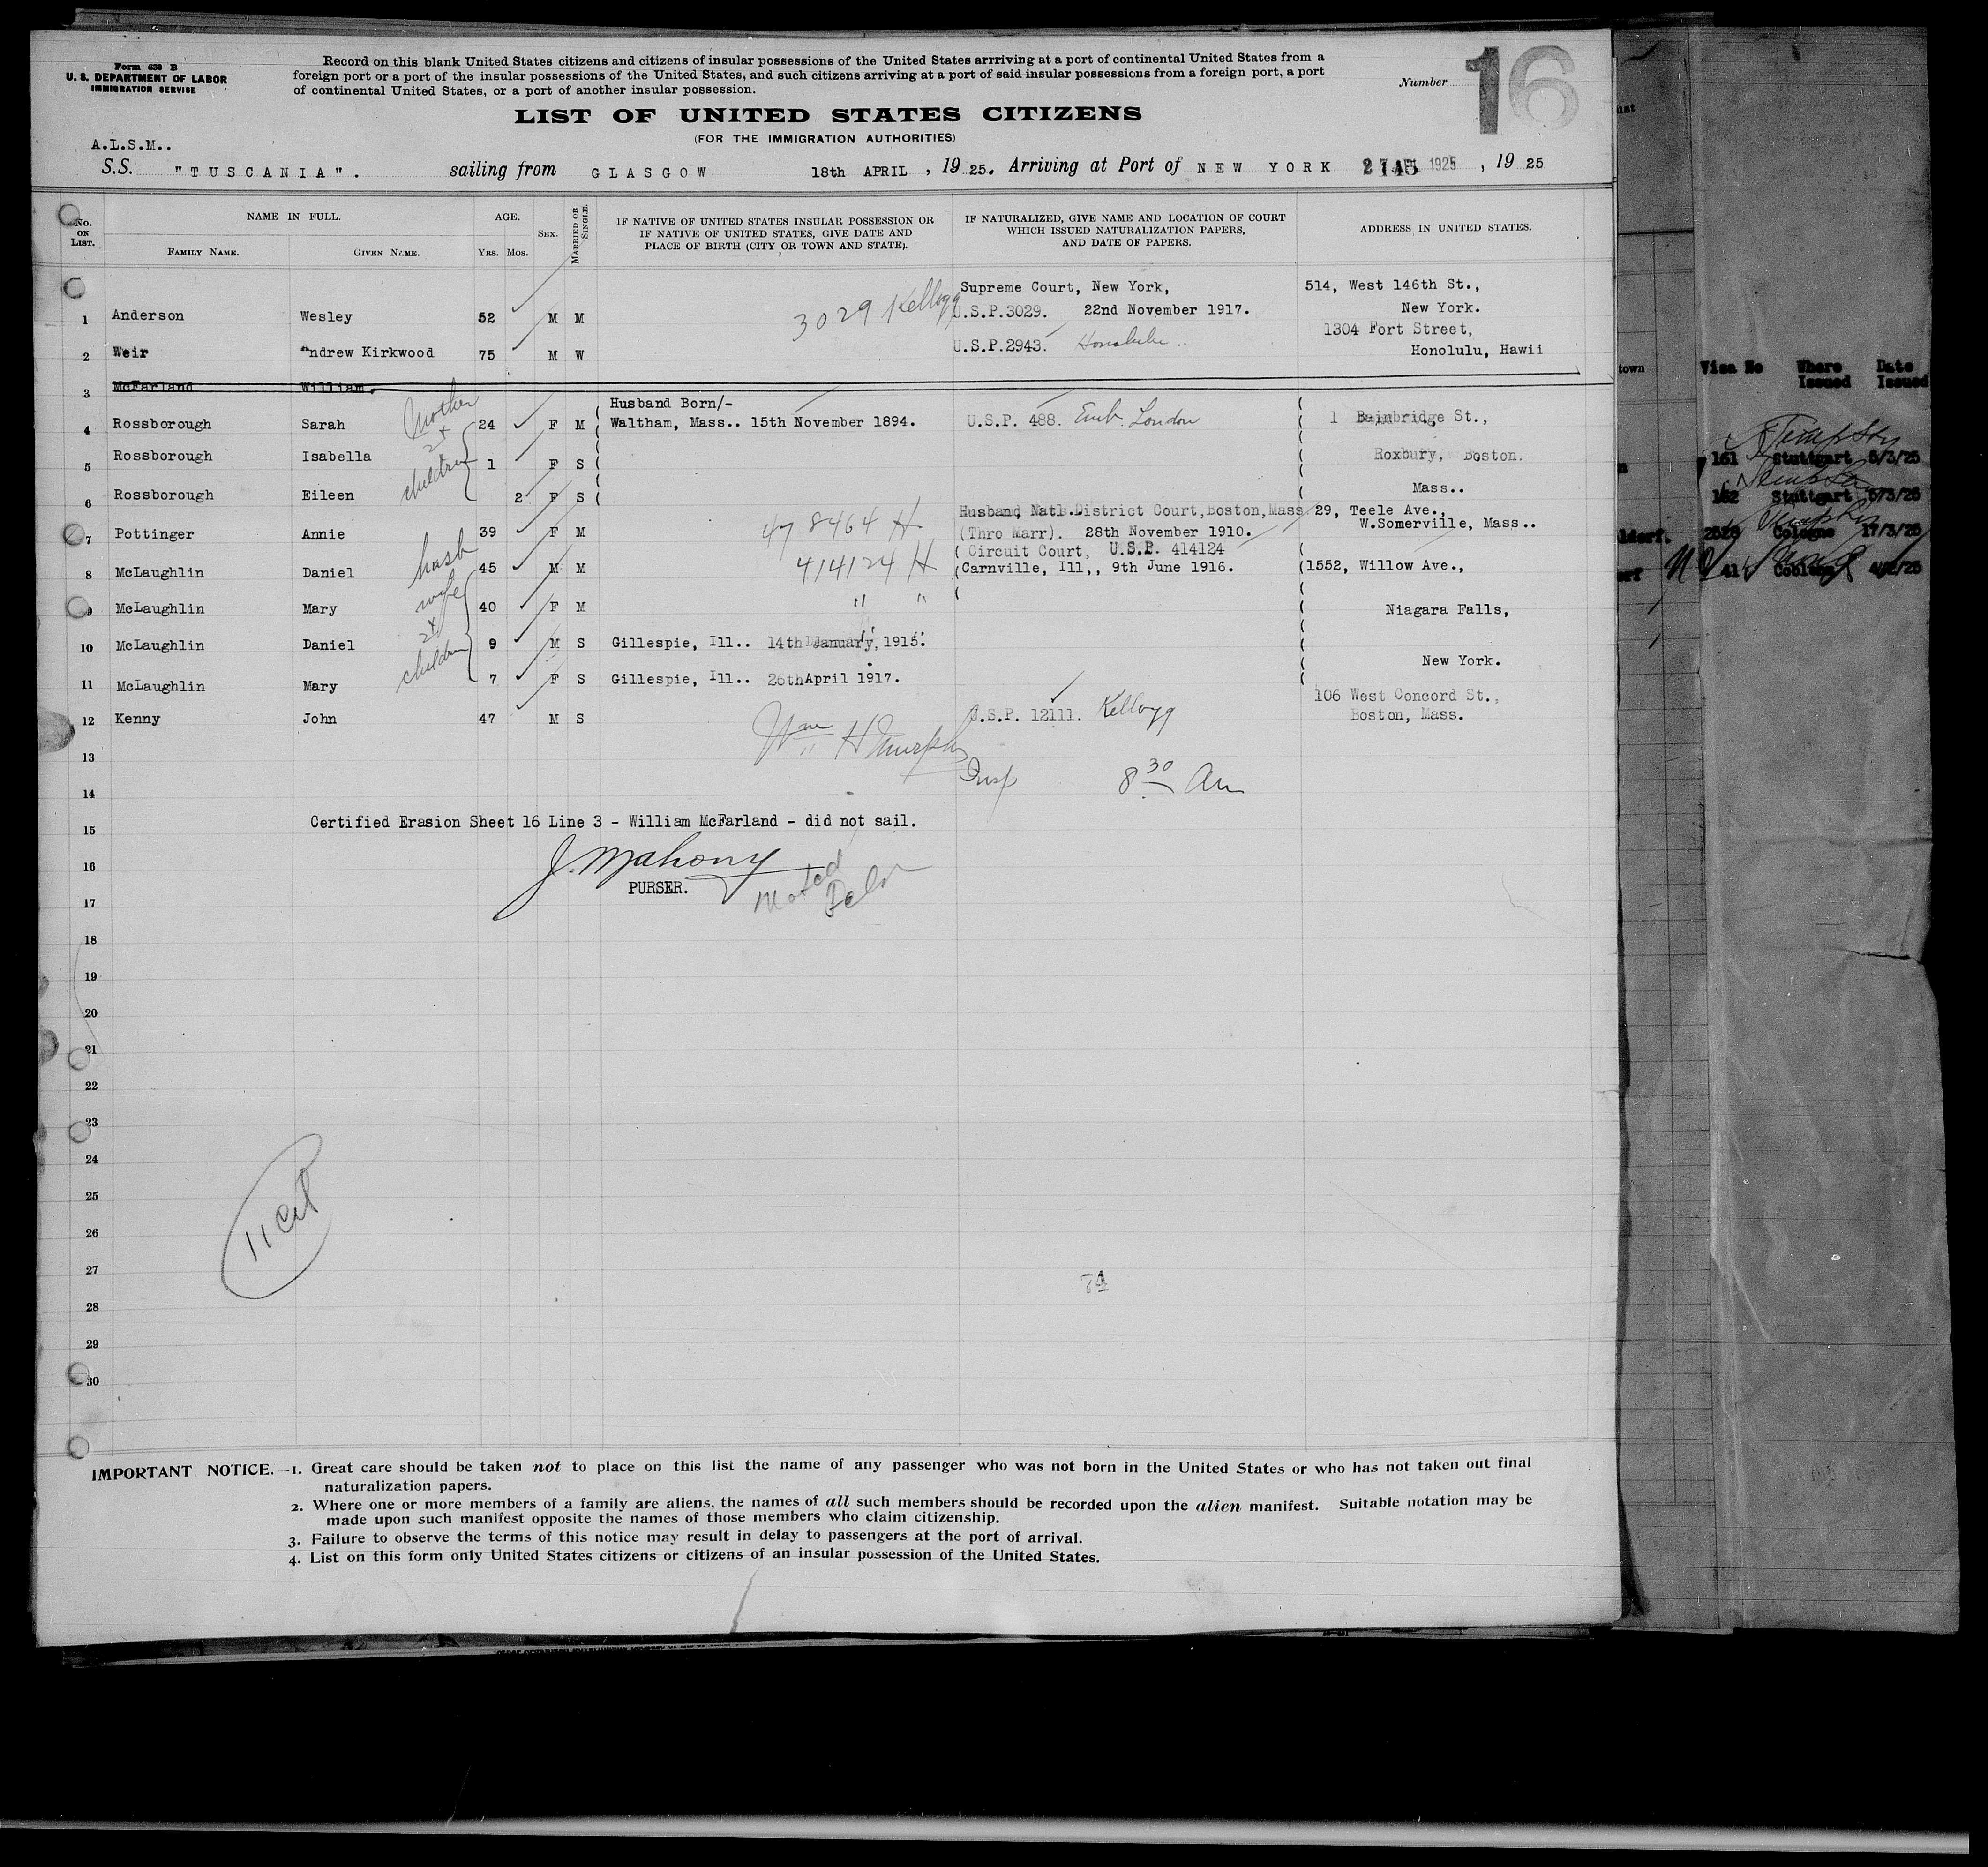 Form 630 B
U. S. DEPARTMENT OF LABOR
IMMIGRATION SERVICE
Record on this blank United States citizens and citizens of insular possessions of the United States arrriving at a port of continental United States from a
foreign port or a port of the insular possessions of the United States, and such citizens arriving at a port of said insular possessions from a foreign port, a port
of continental United States, or a port of another insular possession.
Number 16
LIST OF UNITED STATES CITIZENS
(FOR THE IMMIGRATION AUTHORITIES)
A.L.S.M..
S.S. "TUSCANIA". sailing from GLASGOW 18th APRIL, 1925. Arriving at Port of NEW YORK 1925, 1925
No. ON LIST. NAME IN FULL. AGE. SEX. MARRIED OR SINGLE. IF NATIVE OF UNITED STATES INSULAR POSSESSION OR IF NATIVE OF UNITED STATES, GIVE DATE AND PLACE OF BIRTH (CITY OR TOWN AND STATE). IF NATURALIZED, GIVE NAME AND LOCATION OF COURT WHICH ISSUED NATURALIZATION PAPERS, AND DATE OF PAPERS. ADDRESS IN UNITED STATES.
FAMILY NAME. GIVEN NAME. YRS. MOS.
Supreme Court, New York, 514, West 146th St.,
1 Anderson Wesley 52 M M 3029 Kellogg U.S.P.3029. 22nd November 1917. New York.
1304 Fort Street,
2 Weir Andrew Kirkwood 75 M W U.S.P.2943. Honolulu .. Honolulu, Hawii
3 McFarland William.
Mother
Husband Born/-
4 Rossborough Sarah 24 F M Waltham, Mass.. 15th November 1894. U.S.P. 488. Emb. London 1 Bainbridge St.,
2 children
5 Rossborough Isabella 1 F S Roxbury, Boston.
6 Rossborough Eileen 2 F S Mass..
Husband, Natl.District Court,Boston,Mass 29, Teele Ave.,
7 Pottinger Annie 39 F M 478464 H. (Thro Marr). 28th November 1910. W.Somerville, Mass..
husb
( Circuit Court, U.S.P. 414124
8 McLaughlin Daniel 45 M M 414124 H (Carnville, Ill,, 9th June 1916. (1552, Willow Ave.,
wife
9 McLaughlin Mary 40 F M " " Niagara Falls,
2 children
10 McLaughlin Daniel 9 M S Gillespie, Ill.. 14th January, 1915.
New York.
11 McLaughlin Mary 7 F S Gillespie, Ill.. 26thApril 1917.
106 West Concord St.,
12 Kenny John 47 M S U.S.P. 12111. Kellogg Boston, Mass.
Wm H Murphy
13
Insp 8 30 Am
14
15 Certified Erasion Sheet 16 Line 3 - William McFarland - did not sail.
16 J. Mahony
PURSER.
Noted
17
18
19
20
21
22
23
24
25
11 cit
26
27
28
29
30
IMPORTANT NOTICE.—1. Great care should be taken not to place on this list the name of any passenger who was not born in the United States or who has not taken out final
naturalization papers.
2. Where one or more members of a family are aliens, the names of all such members should be recorded upon the alien manifest. Suitable notation may be
made upon such manifest opposite the names of those members who claim citizenship.
3. Failure to observe the terms of this notice may result in delay to passengers at the port of arrival.
4. List on this form only United States citizens or citizens of an insular possession of the United States.
town
Visa No Where Issued Date Issued
161 Stuttgart 5/3/25
162 Stuttgart 5/3/25
2528 Cologne 17/3/25
41 Coblenz